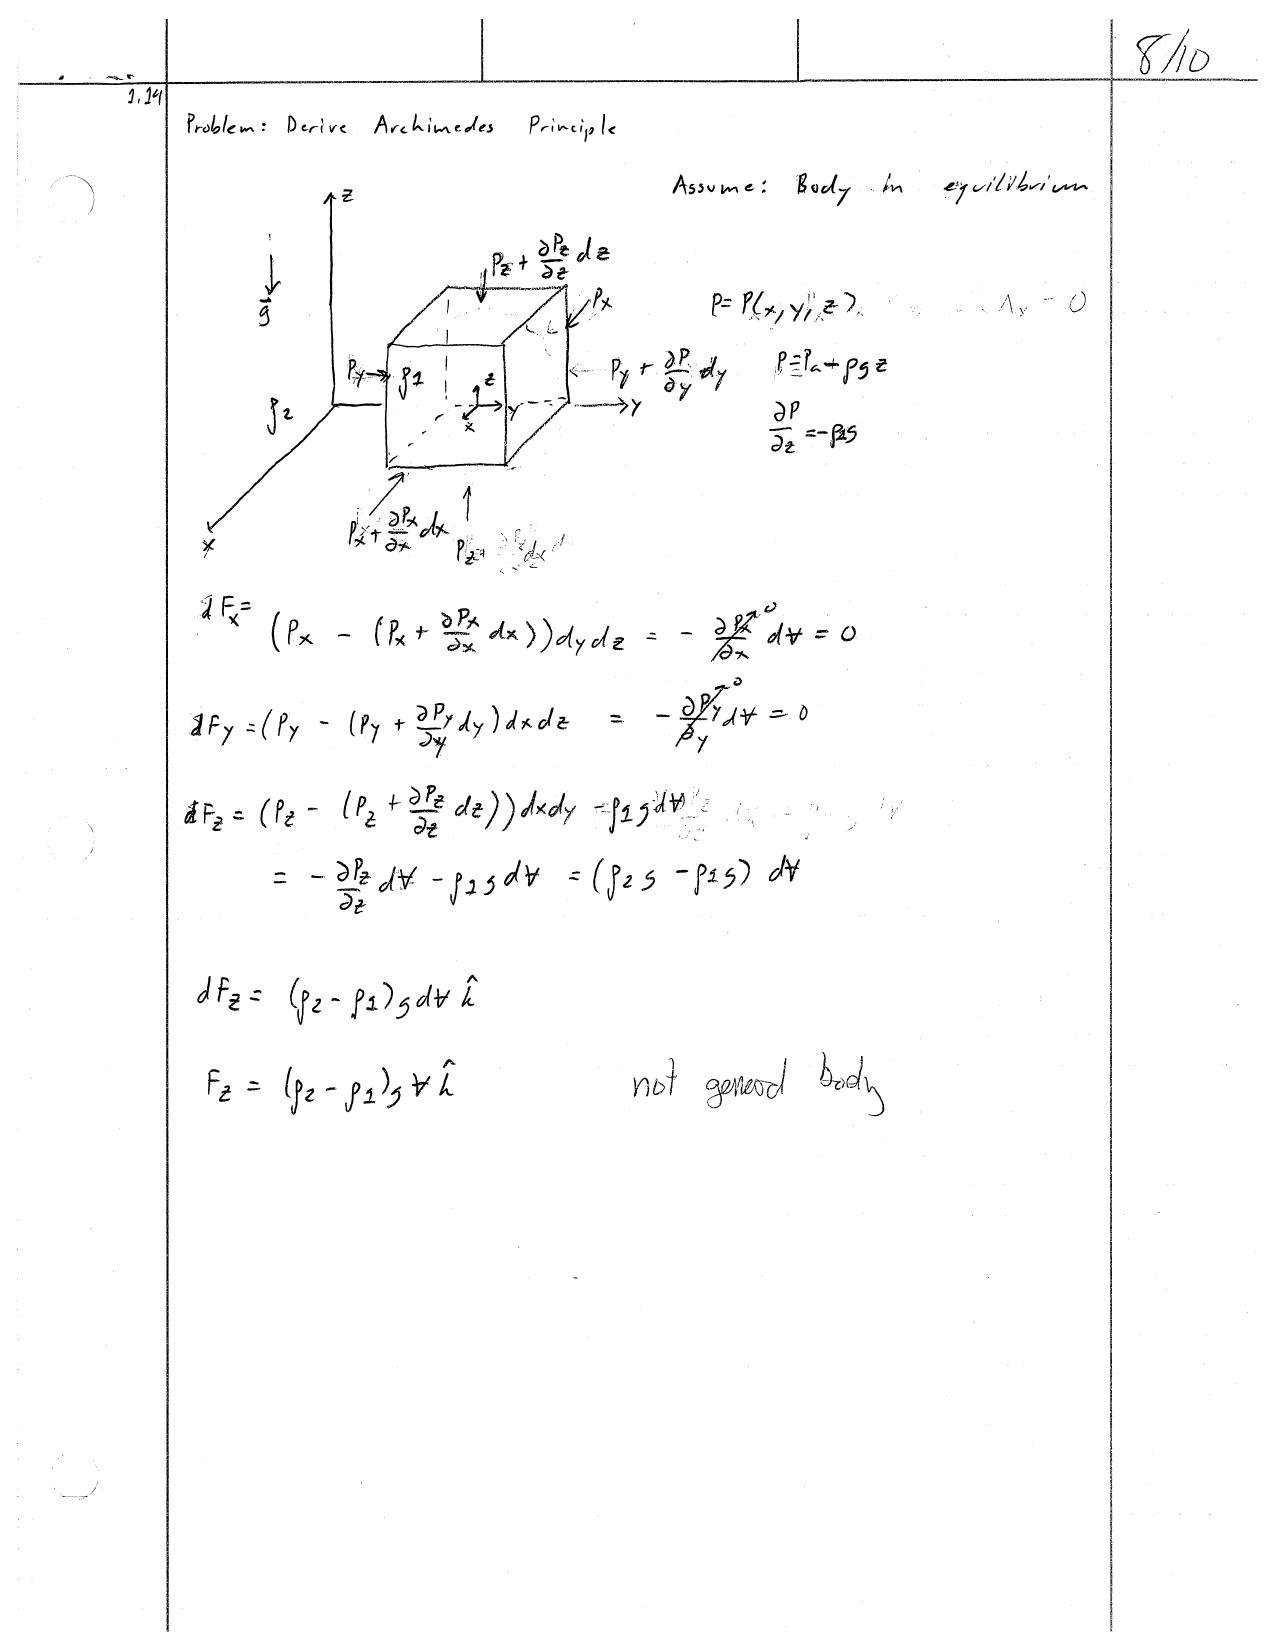 8/10
1.14
Problem: Derive Archimedes Principle
Assume: Body in equilibrium
z
g⃗
Pz + ∂Pz/∂z dz
Px
P = P(x, y, z)
Py
ρ1
z
y
x
Py + ∂P/∂y dy
P = Pa - ρgz
ρ2
y
∂P/∂z = -ρ2g
x
Px + ∂Px/∂x dx
Pz
dFx = (Px - (Px + ∂Px/∂x dx)) dy dz = - ∂Px/∂x→0 d∀ = 0
dFy = (Py - (Py + ∂Py/∂y dy) dx dz = - ∂Py/∂y→0 d∀ = 0
dFz = (Pz - (Pz + ∂Pz/∂z dz)) dx dy - ρ1 g d∀
= - ∂Pz/∂z d∀ - ρ1 g d∀ = (ρ2 g - ρ1 g) d∀
dFz = (ρ2 - ρ1) g d∀ k̂
Fz = (ρ2 - ρ1) g ∀ k̂
not general body